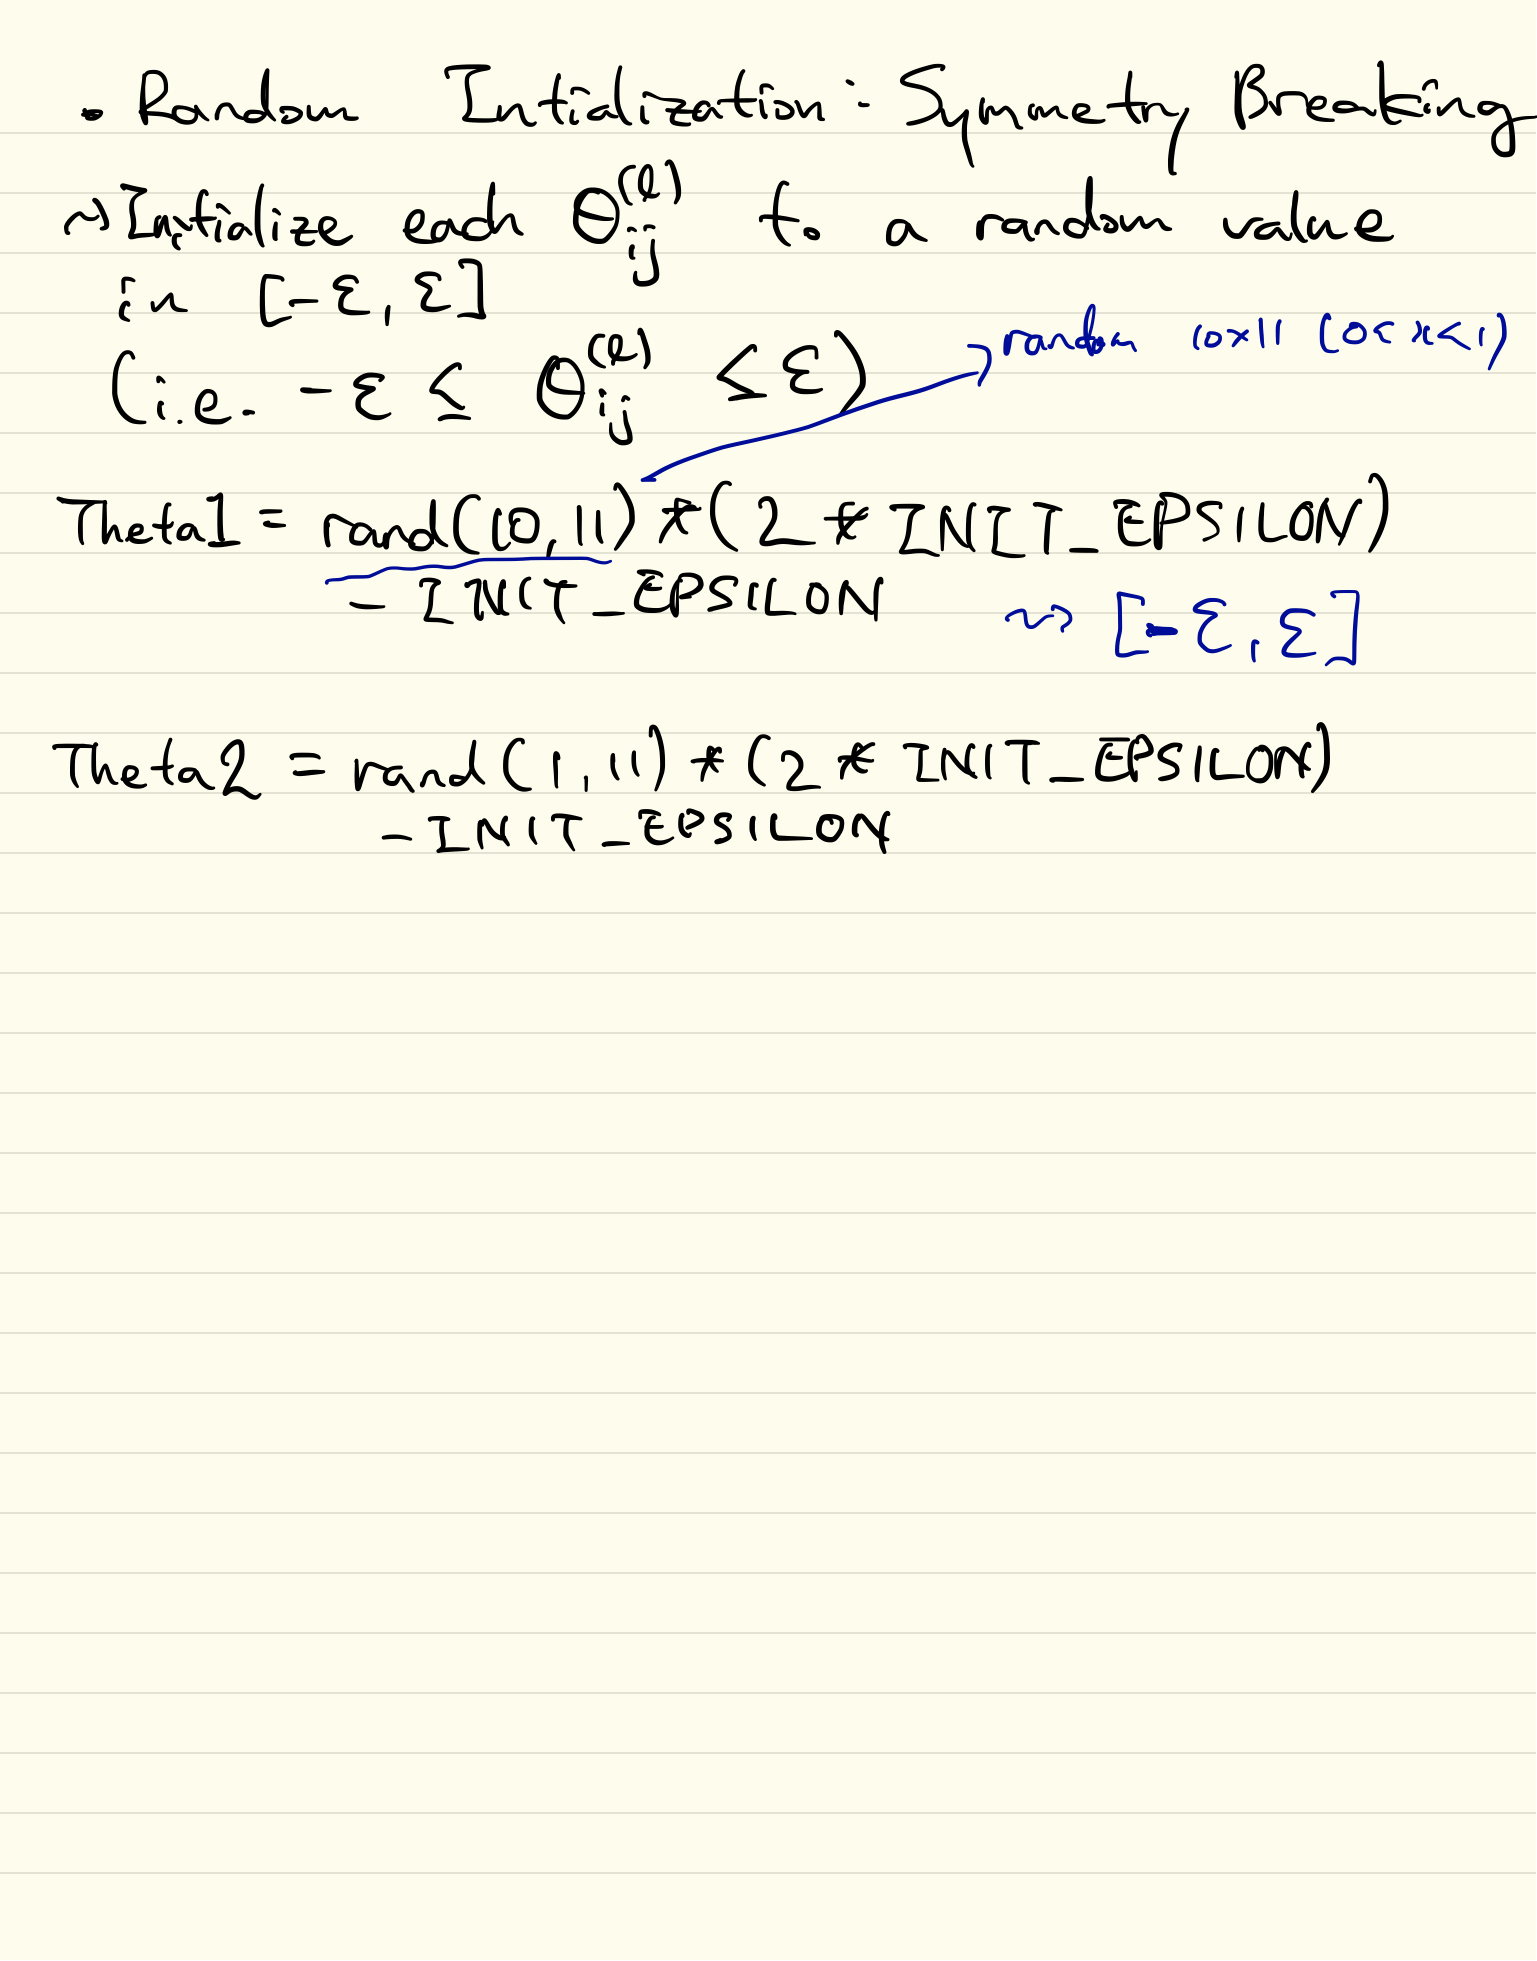 • Random Intialization : Symmetry Breaking
~> Initialize each Θij^(l) to a random value
in [-ε, ε]
(i.e. -ε ≤ Θij^(l) ≤ ε)
random 10x11 (0<x<1)
Theta1 = rand(10,11) * (2 * INIT_EPSILON)
- INIT_EPSILON
~> [-ε, ε]
Theta2 = rand(1,11) * (2 * INIT_EPSILON)
- INIT_EPSILON